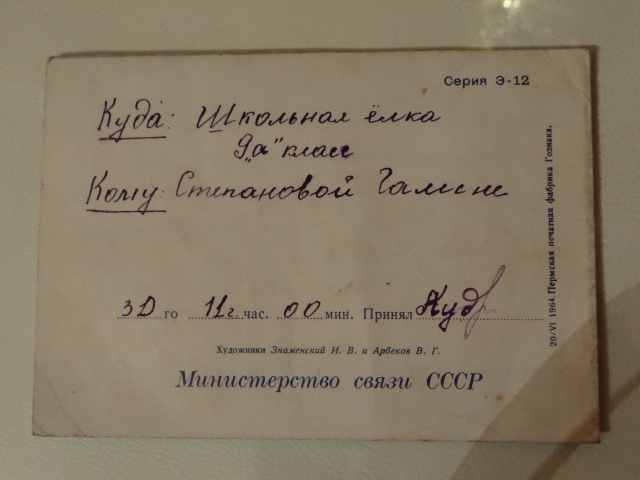 Серия Э-12
Куда: Школьная ёлка
9 „а" класс
Кому: Степановой Галине
30 го 11 г. час. 00 мин. Принял Кудр
Художники Знаменский И. В. и Арбеков В. Г.
Министерство связи СССР
20/VI 1964. Пермская печатная фабрика Гознака.